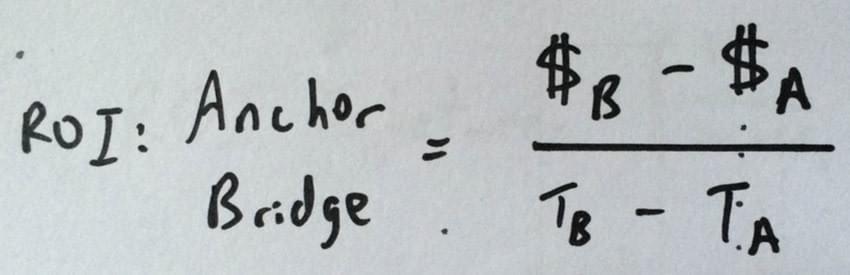 ROI: Anchor Bridge = $B - $A
TB - TA